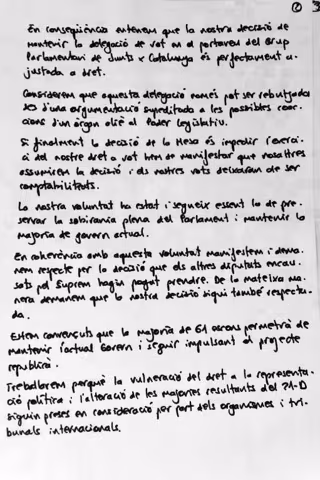 ② 3
En conseqüència entenem que la nostra decisió de
mantenir la delegació de vot en el portaveu del Grup
Parlamentari de Junts x Catalunya és perfectament a-
justada a dret.
Considerem que aquesta delegació només pot ser rebutjada
des d'una argumentació supeditada a les possibles reac-
cions d'un òrgan aliè al Poder Legislatiu.
Si finalment la decisió de la Mesa és impedir l'exerci-
ci del nostre dret a vot hem de manifestar que nosaltres
assumirem la decisió i els nostres vots deixaran de ser
comptabilitzats.
La nostra voluntat ha estat i segueix essent la de pre-
servar la sobirania plena del Parlament i mantenir la
majoria de govern actual.
En coherència amb aquesta voluntat manifestem i dema-
nem respecte per la decisió que els altres diputats encau-
sats pel Suprem hagin pogut prendre. De la mateixa ma-
nera demanem que la nostra decisió sigui també respecta-
da.
Estem convençuts que la majoria de 61 escons permetrà de
mantenir l'actual Govern i seguir impulsant el projecte
republicà.
Treballarem perquè la vulneració del dret a la representa-
ció política i l'alteració de les majories resultants del 21-D
siguin preses en consideració per part dels organismes i tri-
bunals internacionals.